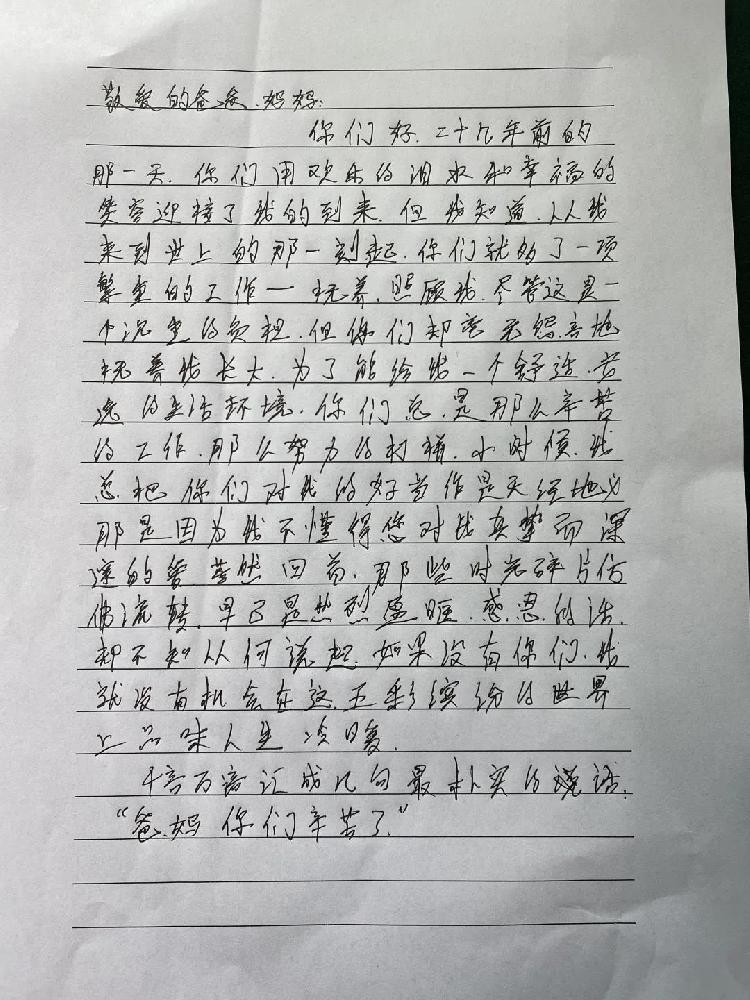 敬爱的爸爸.妈妈:
你们好.二十九年前的
那一天.你们用欢乐的泪水和幸福的
笑容迎接了我的到来.但我知道.从我
来到世上的那一刻起.你们就多了一项
繁重的工作一抚养.照顾我.尽管这是一
个沉重的负担.但你们却毫无怨言地
抚养我长大.为了能给我一个舒适.安
逸的生活环境.你们总.是那么辛苦
的工作.那么努力的打拼.小时候.我
总把你们对我的好当作是天经地义
那是因为我不懂得您对我真挚而深
深的爱蓦然回首.那些时光碎片仿
佛流转.早已是热烈盈眶.感恩的话.
却不知从何说起.如果没有你们.我
就没有机会在这.五彩缤纷的世界
上品味人生冷暖.
千言万语汇成几句最朴实的话.
“爸.妈你们辛苦了.”